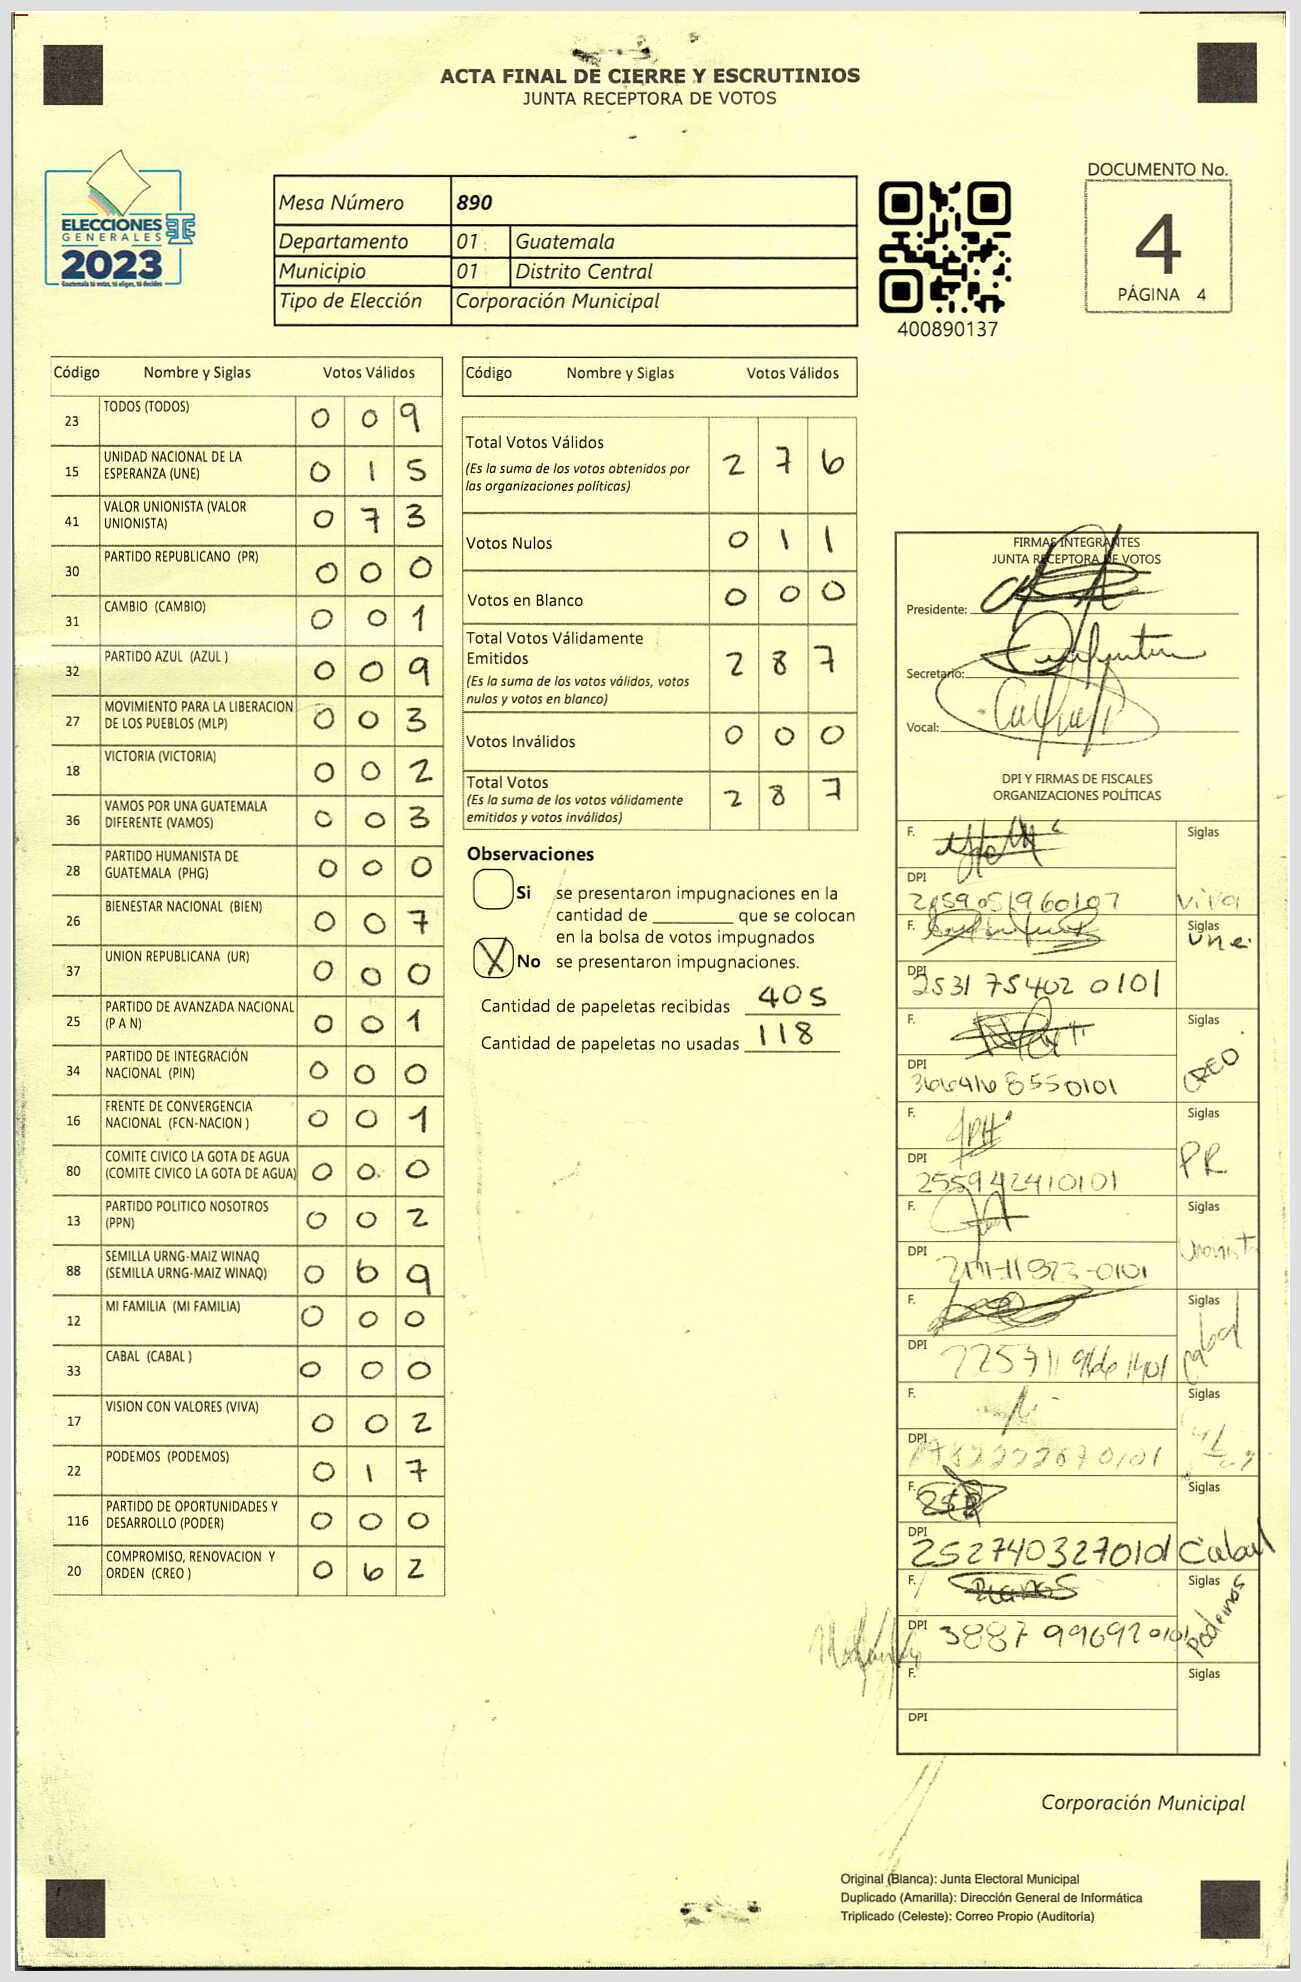 ACTA FINAL DE CIERRE Y ESCRUTINIOS
JUNTA RECEPTORA DE VOTOS
ELECCIONES
GENERALES
2023
Guatemala tú votas, tú eliges, tú decides
Mesa Número 890
Departamento 01 Guatemala
Municipio 01 Distrito Central
Tipo de Elección Corporación Municipal
400890137
DOCUMENTO No.
4
PÁGINA 4
Código Nombre y Siglas Votos Válidos
23 TODOS (TODOS) 0 0 9
15 UNIDAD NACIONAL DE LA
ESPERANZA (UNE) 0 1 5
41 VALOR UNIONISTA (VALOR
UNIONISTA) 0 7 3
30 PARTIDO REPUBLICANO (PR) 0 0 0
31 CAMBIO (CAMBIO) 0 0 1
32 PARTIDO AZUL (AZUL ) 0 0 9
27 MOVIMIENTO PARA LA LIBERACION
DE LOS PUEBLOS (MLP) 0 0 3
18 VICTORIA (VICTORIA) 0 0 2
36 VAMOS POR UNA GUATEMALA
DIFERENTE (VAMOS) 0 0 3
28 PARTIDO HUMANISTA DE
GUATEMALA (PHG) 0 0 0
26 BIENESTAR NACIONAL (BIEN) 0 0 7
37 UNION REPUBLICANA (UR) 0 0 0
25 PARTIDO DE AVANZADA NACIONAL
(P A N) 0 0 1
34 PARTIDO DE INTEGRACIÓN
NACIONAL (PIN) 0 0 0
16 FRENTE DE CONVERGENCIA
NACIONAL (FCN-NACION ) 0 0 1
80 COMITE CIVICO LA GOTA DE AGUA
(COMITE CIVICO LA GOTA DE AGUA) 0 0 0
13 PARTIDO POLITICO NOSOTROS
(PPN) 0 0 2
88 SEMILLA URNG-MAIZ WINAQ
(SEMILLA URNG-MAIZ WINAQ) 0 6 9
12 MI FAMILIA (MI FAMILIA) 0 0 0
33 CABAL (CABAL ) 0 0 0
17 VISION CON VALORES (VIVA) 0 0 2
22 PODEMOS (PODEMOS) 0 1 7
116 PARTIDO DE OPORTUNIDADES Y
DESARROLLO (PODER) 0 0 0
20 COMPROMISO, RENOVACION Y
ORDEN (CREO ) 0 6 2
Código Nombre y Siglas Votos Válidos
Total Votos Válidos 2 7 6
(Es la suma de los votos obtenidos por
las organizaciones políticas)
Votos Nulos 0 1 1
Votos en Blanco 0 0 0
Total Votos Válidamente
Emitidos 2 8 7
(Es la suma de los votos válidos, votos
nulos y votos en blanco)
Votos Inválidos 0 0 0
Total Votos 2 8 7
(Es la suma de los votos válidamente
emitidos y votos inválidos)
Observaciones
Si se presentaron impugnaciones en la
cantidad de ________ que se colocan
en la bolsa de votos impugnados
X No se presentaron impugnaciones.
Cantidad de papeletas recibidas 405
Cantidad de papeletas no usadas 118
FIRMAS INTEGRANTES
JUNTA RECEPTORA DE VOTOS
Presidente:
Secretario:
Vocal:
DPI Y FIRMAS DE FISCALES
ORGANIZACIONES POLÍTICAS
F. Siglas
DPI
viva
F. Siglas
une
DPI
2531 75402 0101
F. Siglas
CREO
DPI
F. Siglas
PR
DPI
2559 42410101
F. Siglas
Unionista
DPI
F. Siglas
Cabal
DPI
F. Siglas
DPI
F. Siglas
DPI
2527403270101 Cabal
F. Siglas
Podemos
DPI
3887 99692 0101
F. Siglas
DPI
Corporación Municipal
Original (Blanca): Junta Electoral Municipal
Duplicado (Amarilla): Dirección General de Informática
Triplicado (Celeste): Correo Propio (Auditoría)